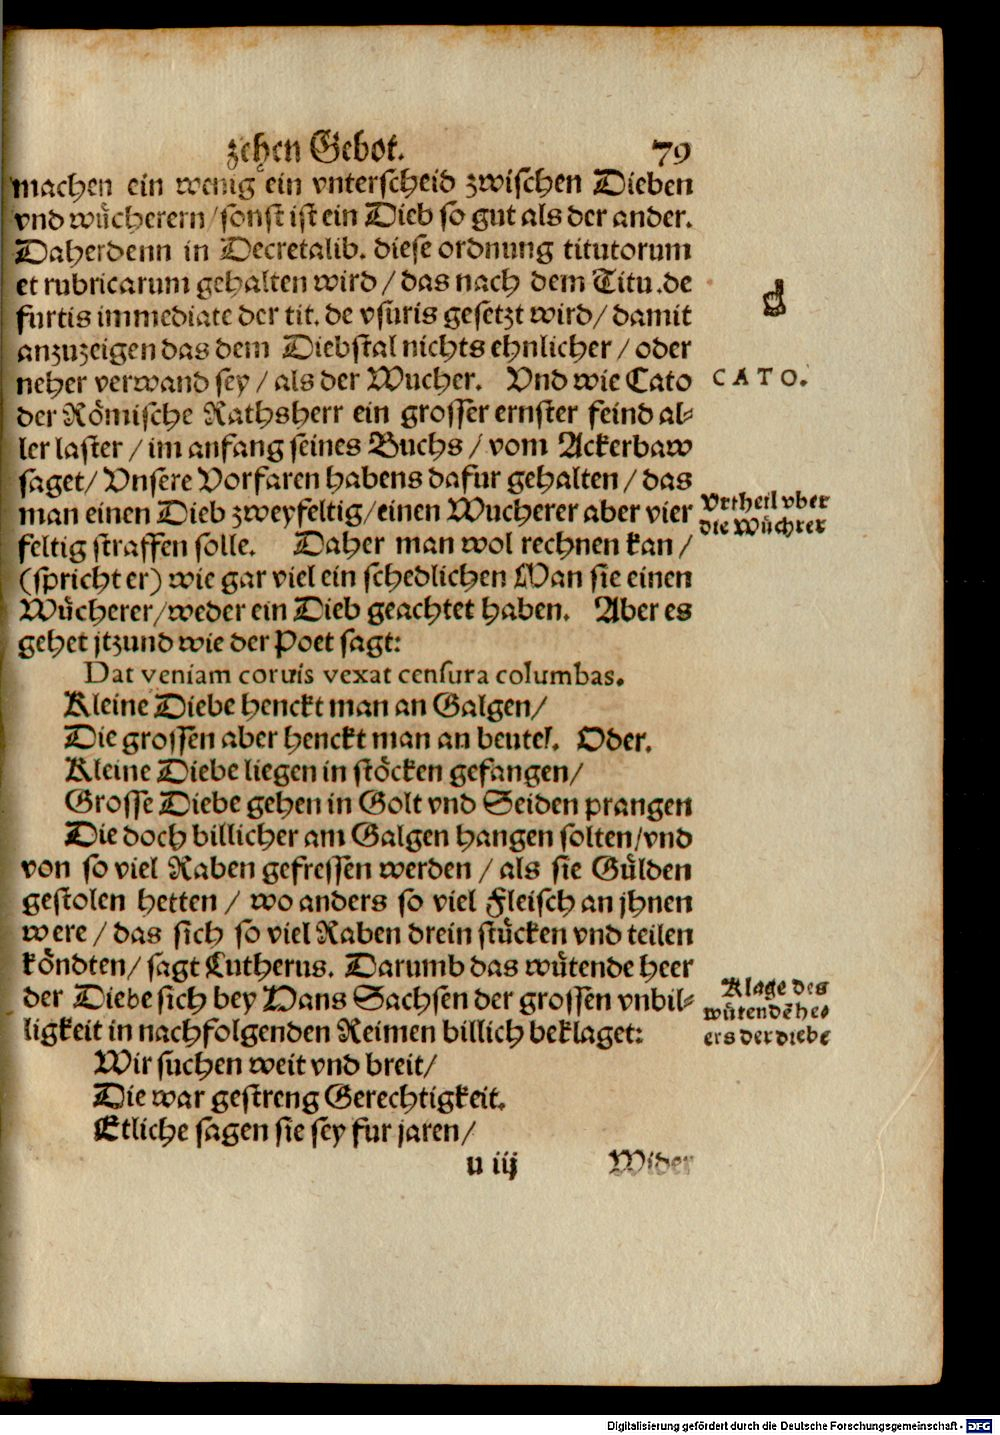 zehen Gebot. 79
machen ein wenig ein vnterscheid zwischen Dieben
vnd wůcherern/sonst ist ein Dieb so gut als der ander.
Daherdenn in Decretalib. diese ordnung titutorum
et rubricarum gehalten wird/das nach dem Titu.de
furtis immediate der tit. de vsuris gesetzt wird/damit
anzuzeigen das dem Diebstal nichts ehnlicher/oder
neher verwand sey/als der Wucher. Vnd wie Cato
CATO.
der Rômische Rathsherr ein grosser ernster feind al⸗
ler laster/im anfang seines Buchs/vom Ackerbaw
saget/Vnsere Vorfaren habens dafur gehalten/das
man einen Dieb zweyfeltig/einen Wucherer aber vier
Vrtheil vber
die Wůchrer
feltig straffen solle. Daher man wol rechnen kan/
(spricht er) wie gar viel ein schedlichen Man sie einen
Wůcherer/weder ein Dieb geachtet haben. Aber es
gehet jtzund wie der Poet sagt:
Dat veniam coruis vexat censura columbas.
Kleine Diebe henckt man an Galgen/
Die grossen aber henckt man an beutel. Oder.
Kleine Diebe liegen in stôcken gefangen/
Grosse Diebe gehen in Golt vnd Seiden prangen
Die doch billicher am Galgen hangen solten/vnd
von so viel Raben gefressen werden/als sie Gůlden
gestolen hetten/wo anders so viel Fleisch an jhnen
were/das sich so viel Raben drein stůcken vnd teilen
kôndten/sagt Lutherus. Darumb das wůtende heer
der Diebe sich bey Hans Sachsen der grossen vnbil⸗
ligkeit in nachfolgenden Reimen billich beklaget:
Klage des
wůtendē he⸗
ers der diebe
Wir suchen weit vnd breit/
Die war gestreng Gerechtigkeit.
Etliche sagen sie sey fur jaren/
u iij Wider
Digitalisierung gefördert durch die Deutsche Forschungsgemeinschaft - DFG